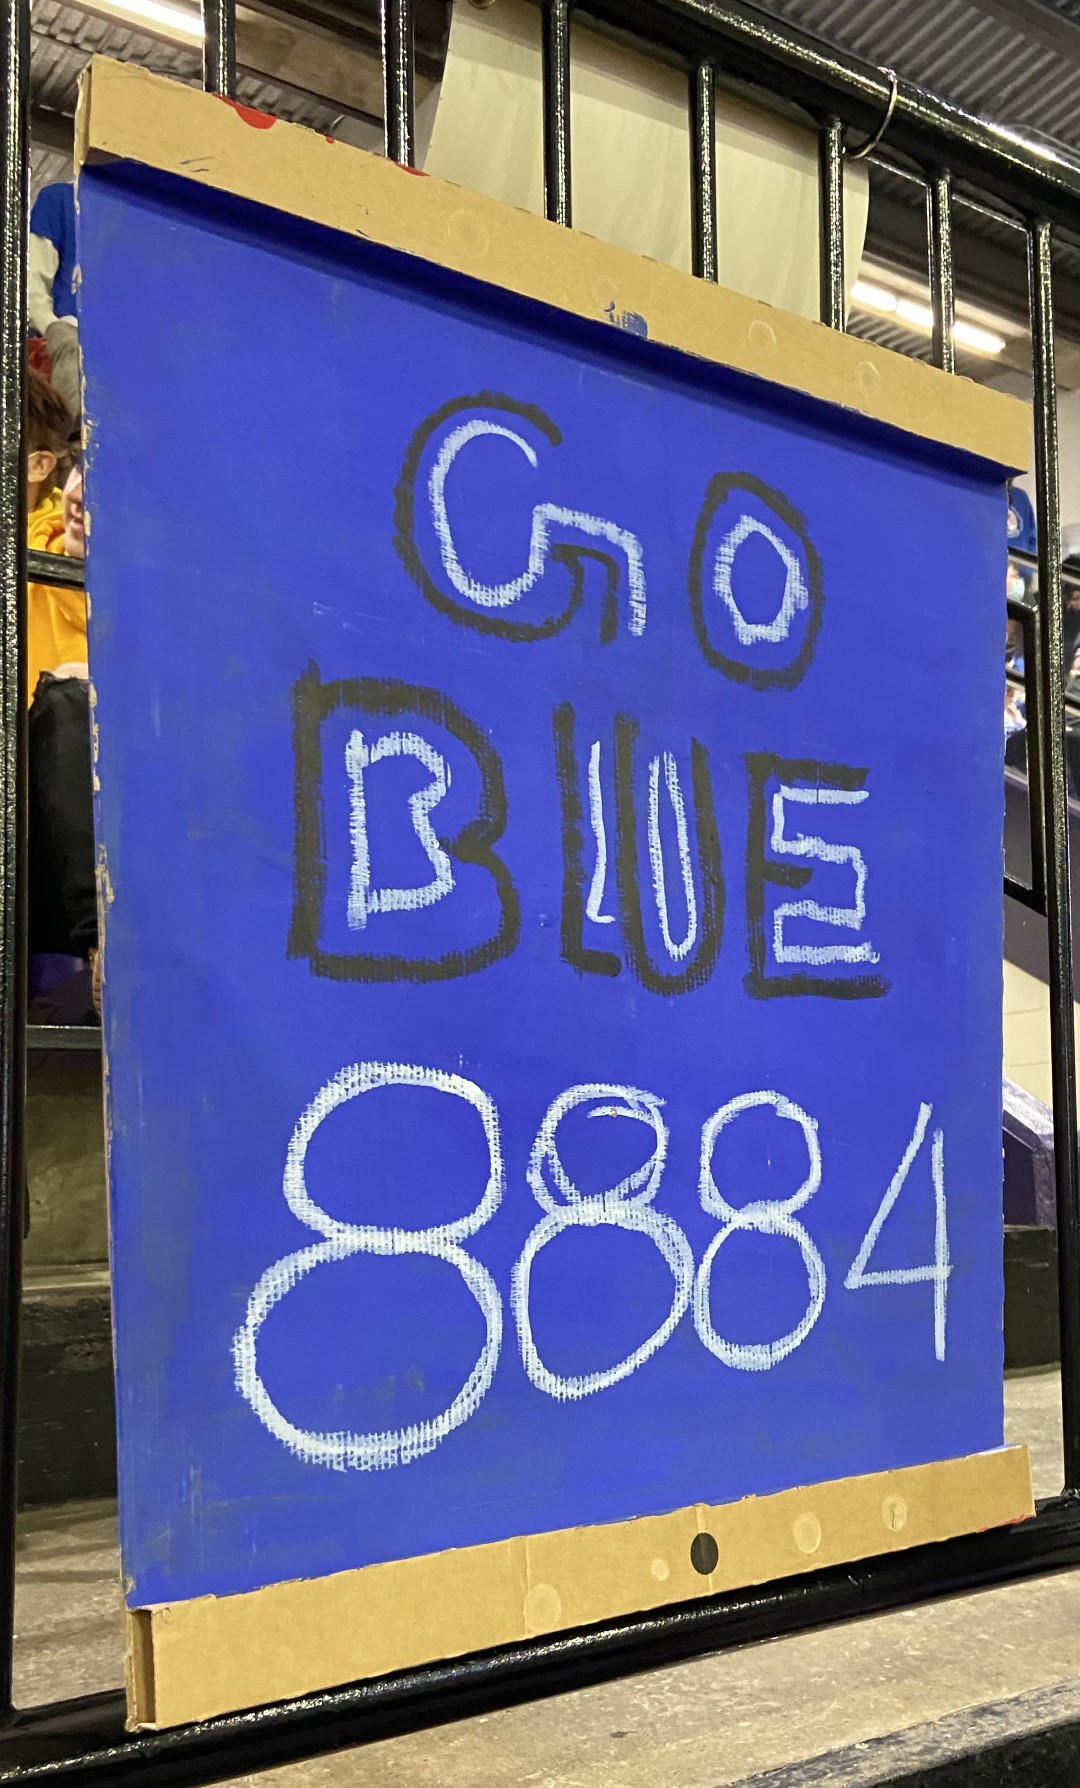 GO
BLUE
8884